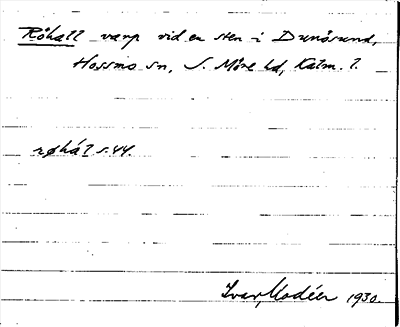 Råhall varp vid en sten i Dunösund,
Hossmo sn, S. Möre hd, Kalm. l.
s. 44.
Ivar Modéer 1930.